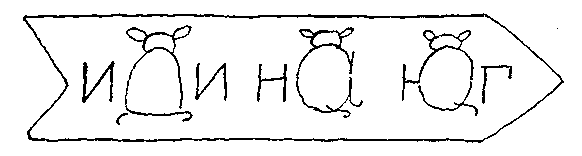 иди на юг